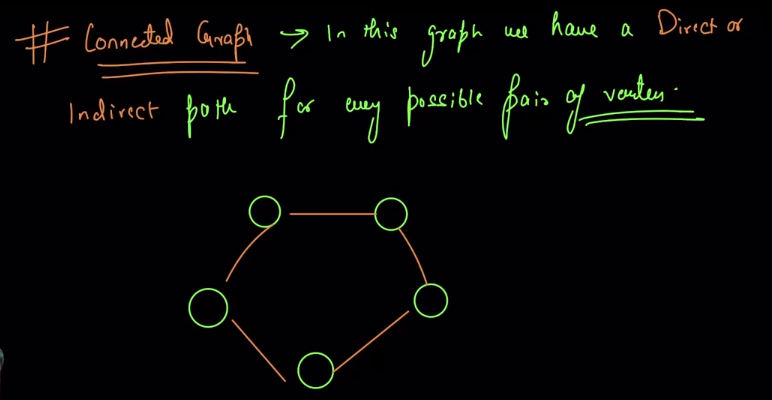 # Connected Graph → In this graph we have a Direct or
Indirect path for every possible pair of vertex.